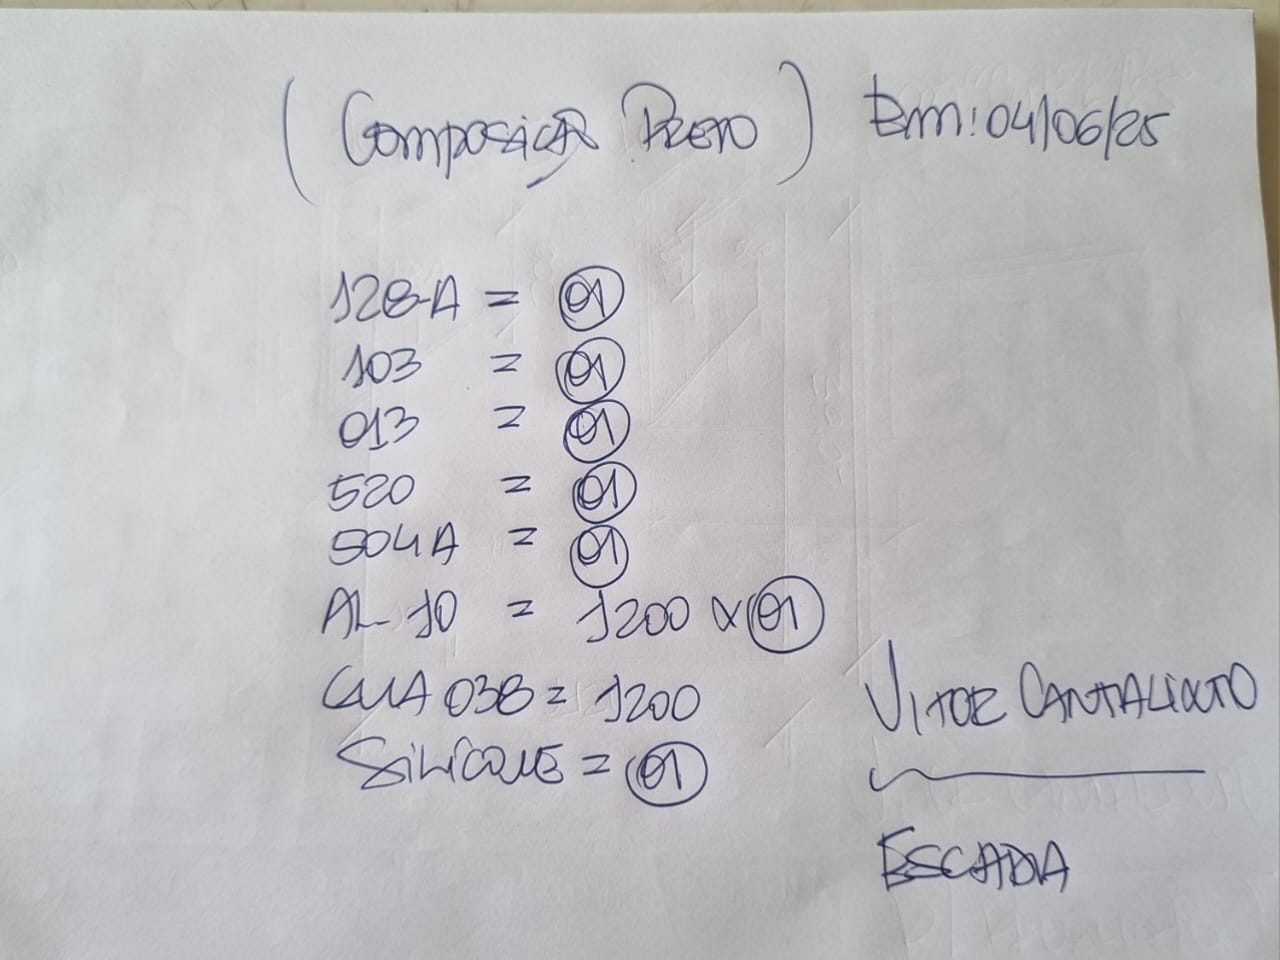 (Composição Preto) Em: 04/06/25
128-A = 01
103 = 01
013 = 01
520 = 01
504A = 01
AL 10 = 1200 x 01
CUA 038 = 1200
SILICONE = 01
VITOR CANTALIXTO
ESCADA